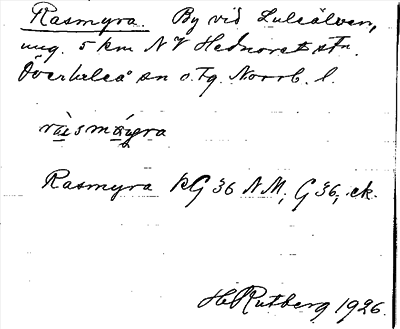 Rasmyra. By vid Luleälven,
ung. 5 km NV Hednoret stn.
Överluleå sn o. tg. Norrb. l.
Rasmyra KG 36 NM, G 36, ek.
H Rutberg 1926.